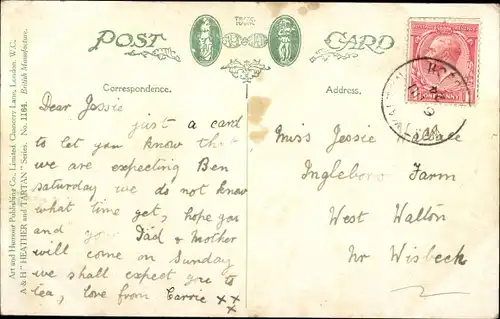 POST CARD
TRADE
Correspondence.
Address.
Dear Jessie
just a card
to let you know that
we are expecting Ben
saturday we do not know
what time yet, hope you
and your Dad & Mother
will come on Sunday
we shall expect you to
tea, love from Carrie x x x
Miss Jessie
Ingleboro Farm
West Walton
Nr Wisbeck
Art and Humour Publishing Co., Limited, Chancery Lane, London, W.C.
A & H "HEATHER and TARTAN" Series. No. 1164. British Manufacture.